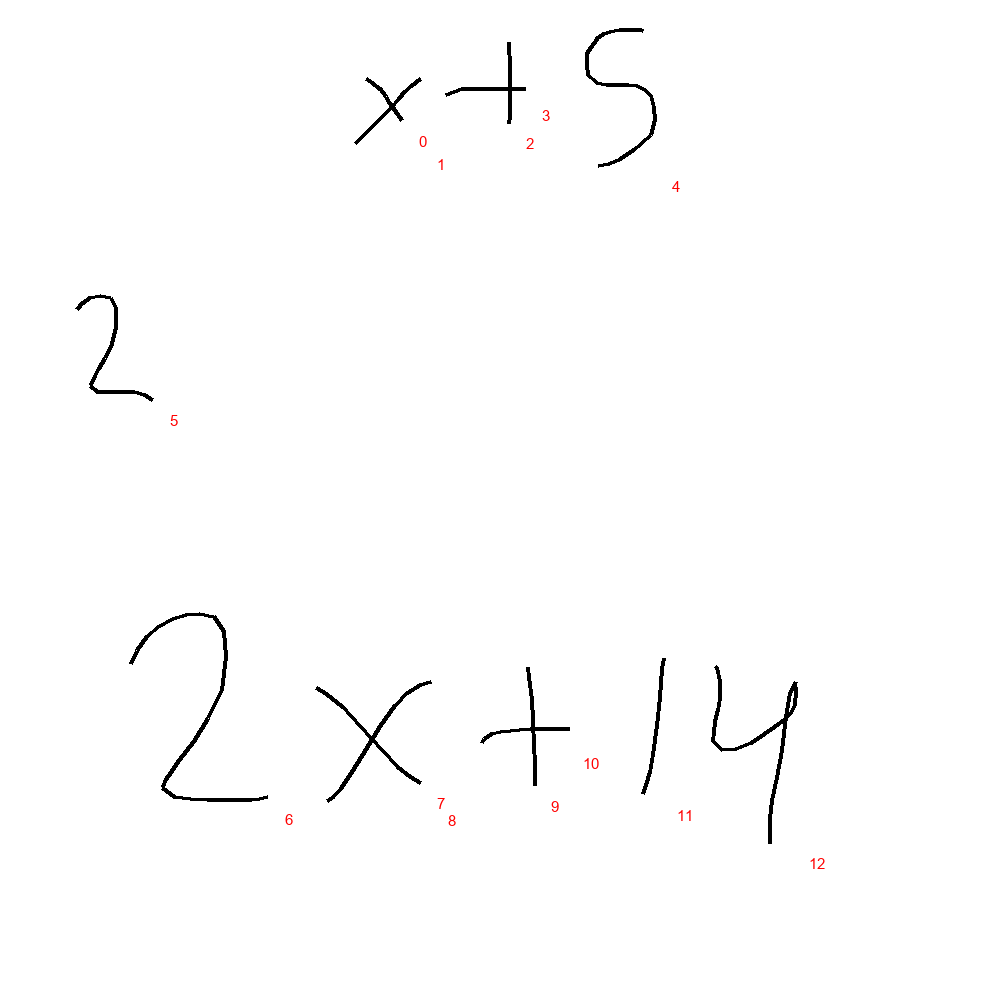 x + 5
0 1 2 3 4
2
5
2x + 14
6 7 8 9 10 11 12